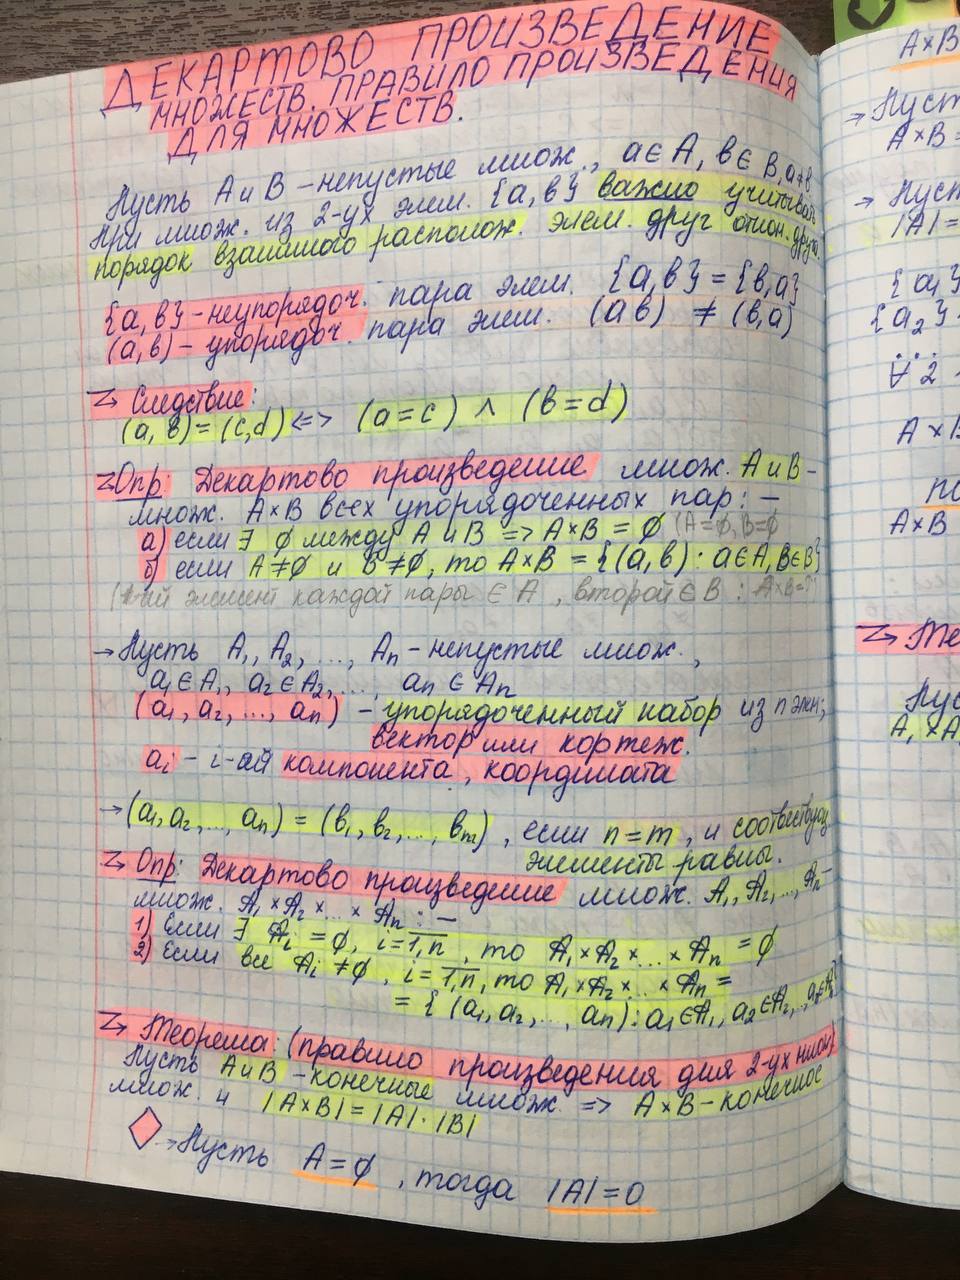 ДЕКАРТОВО ПРОИЗВЕДЕНИЕ
МНОЖЕСТВ. ПРАВИЛО ПРОИЗВЕДЕНИЯ
ДЛЯ МНОЖЕСТВ.
Пусть A и B – непустые множ., a ∈ A, b ∈ B, a ≠ b
При множ. из 2-ух элем. {a, b} важно учитыват
порядок взаимного располож. элем. друг отнон. друга.
{a, b} – неупорядоч. пара элем. {a, b} = {b, a}
(a, b) – упорядоч. пара элем. (a b) ≠ (b, a)
Следствие:
(a, b) = (c, d) <=> (a = c) ∧ (b = d)
Опр: Декартово произведение множ. A и B –
множ. A×B всех упорядоченных пар: –
а) если ∃ ∅ между A и B => A×B = ∅ (A=∅, B=∅
б) если A≠∅ и B≠∅, то A×B = {(a, b) : a∈A, B∈B}
(1-ый элемент каждой пары ∈ A, второй ∈ B : A×B=
→ Пусть A₁, A₂, ..., Aₙ – непустые множ.,
a₁∈A₁, a₂∈A₂, ..., aₙ ∈ Aₙ
(a₁, a₂, ..., aₙ) – упорядоченный набор из n элем;
вектор или кортеж.
aᵢ – i-ай компонента, координата
→ (a₁, a₂, ..., aₙ) = (b₁, b₂, ..., bₘ), если n = m, и соотвествующ.
элементы равны.
Опр: Декартово произведение множ. A₁, A₂, ..., Aₙ –
множ. A₁ × A₂ × ... × Aₙ : –
1) Если ∃ Aᵢ = ∅, i = 1,n, то A₁ × A₂ × ... × Aₙ = ∅
2) Если все Aᵢ ≠ ∅, i = 1,n, то A₁ × A₂ × ... × Aₙ =
= { (a₁, a₂, ..., aₙ) : a₁∈A₁, a₂∈A₂, ..., aₙ∈Aₙ}
Теорема: (правило произведения для 2-ух множ)
Пусть A и B – конечные множ. => A×B – конечное
множ. и |A×B| = |A|·|B|
→ Пусть A = ∅, тогда |A| = 0
A×B
→ Пуст
A×B =
→ Пуст
|A| =
{a₁}
{a₂}
A×B
A×B
Те
Пус
A₁×A